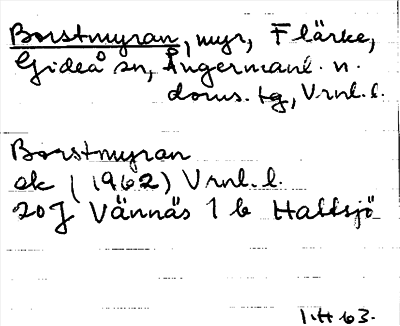 Borstmyran, myr, Flärke,
Gideå sn, Ångermanl. n.
doms. tg, Vrnl. l.
Borstmyran
ek (1962) Vrnl. l.
20J Vännäs 1 b Hattsjö